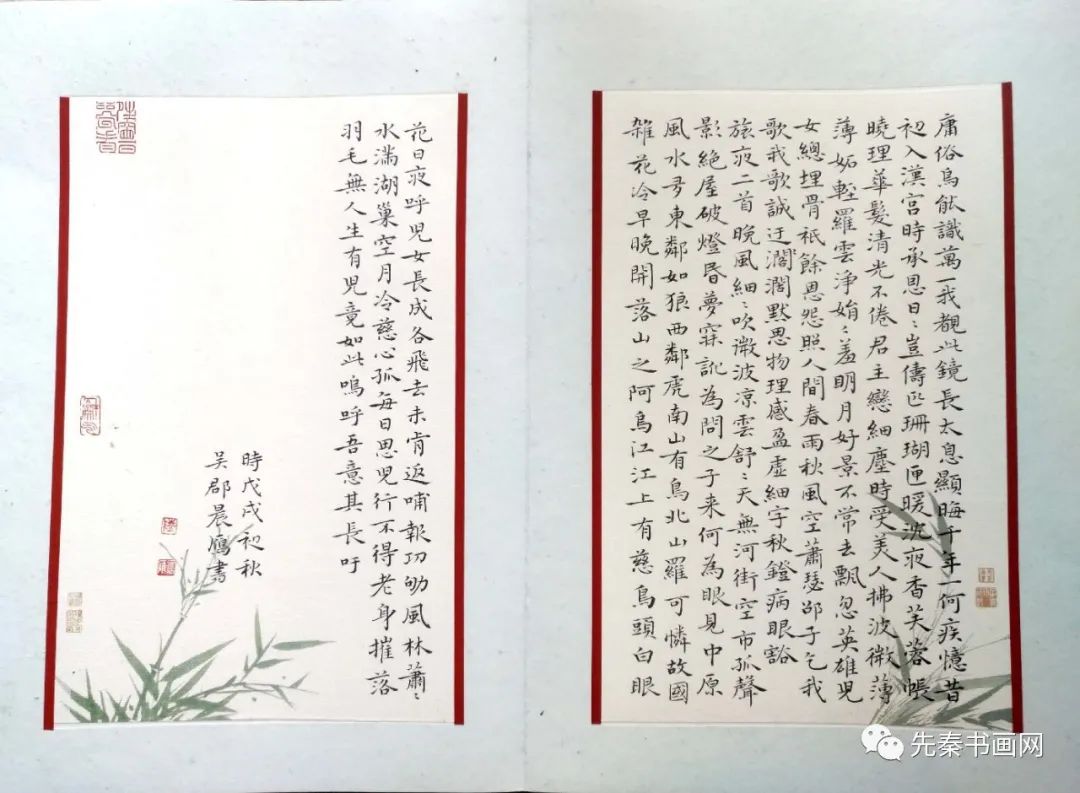 庸俗烏能識萬一我觀此鏡長太息顯晦千年一何疾憶昔
初入漢宮時承恩日〻豈儔匹珊瑚匣暖沈夜香芙蓉帳
曉理華髮清光不倦君主戀細塵時受美人拂波微薄
薄妬輕羅雲淨娟〻羞明月好景不常去飄忽英雄兒
女總埋骨衹餘恩怨照人間春雨秋風空蕭瑟邵子乞我
歌我歌誠迂濶濶默思物理感盈虛細字秋鐙病眼豁
旅夜二首晚風細〻吹微波凉雲舒〻天無河街空市孤聲
影絕屋破燈昏夢寐訛為問之子来何為眼見中原
風水東鄰如狼西鄰虎南山有鳥北山羅可憐故國
雑花冷早晚開落山之阿烏江江上有慈烏頭白眼
花日夜呼児女長成各飛去未肯返哺報功劬風林蕭〻
水滿湖巢空月冷慈心孤每日思児行不得老身摧落
羽毛無人生有児竟如此嗚呼吾意其長吁
時戊戌初秋
吳郡晨鷹書
先秦书画网